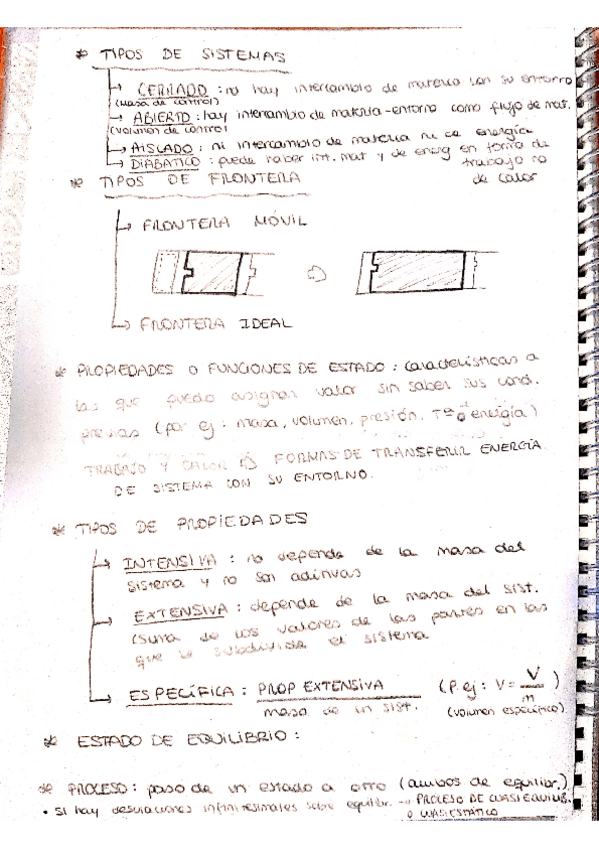 * TIPOS DE SISTEMAS
↳ CERRADO : no hay intercambio de materia con su entorno
(masa de control)
↳ ABIERTO : hay intercambio de materia-entorno como flujo de mat.
(volumen de control
↳ AISLADO : ni intercambio de materia ni de energía
↳ DIABATICO : puede haber int. mat y de energ en forma de
trabajo no
de calor
* TIPOS DE FRONTERA
↳ FRONTERA MÓVIL
↳ FRONTERA IDEAL
* PROPIEDADES O FUNCIONES DE ESTADO : características a
las que puedo asignar valor sin saber sus cond.
previas (por ej : masa, volumen, presión, Tª o energía)
TRABAJO Y CALOR ⇒ FORMAS DE TRANSFERIR ENERGÍA
DE SISTEMA CON SU ENTORNO.
* TIPOS DE PROPIEDADES
↳ INTENSIVA : no depende de la masa del
sistema y no son aditivas
↳ EXTENSIVA : depende de la masa del sist.
(suma de los valores de las partes en las
que se subdivide el sistema
↳ ESPECÍFICA : PROP EXTENSIVA (P.ej : V = V
masa de un sist. m )
(volumen específico)
* ESTADO DE EQUILIBRIO :
* PROCESO : paso de un estado a otro (ambos de equilibr.)
• Si hay desviaciones infinitesimales sobre equilibr. → PROCESO DE CUASIEQUILIB.
O CUASIESTÁTICO